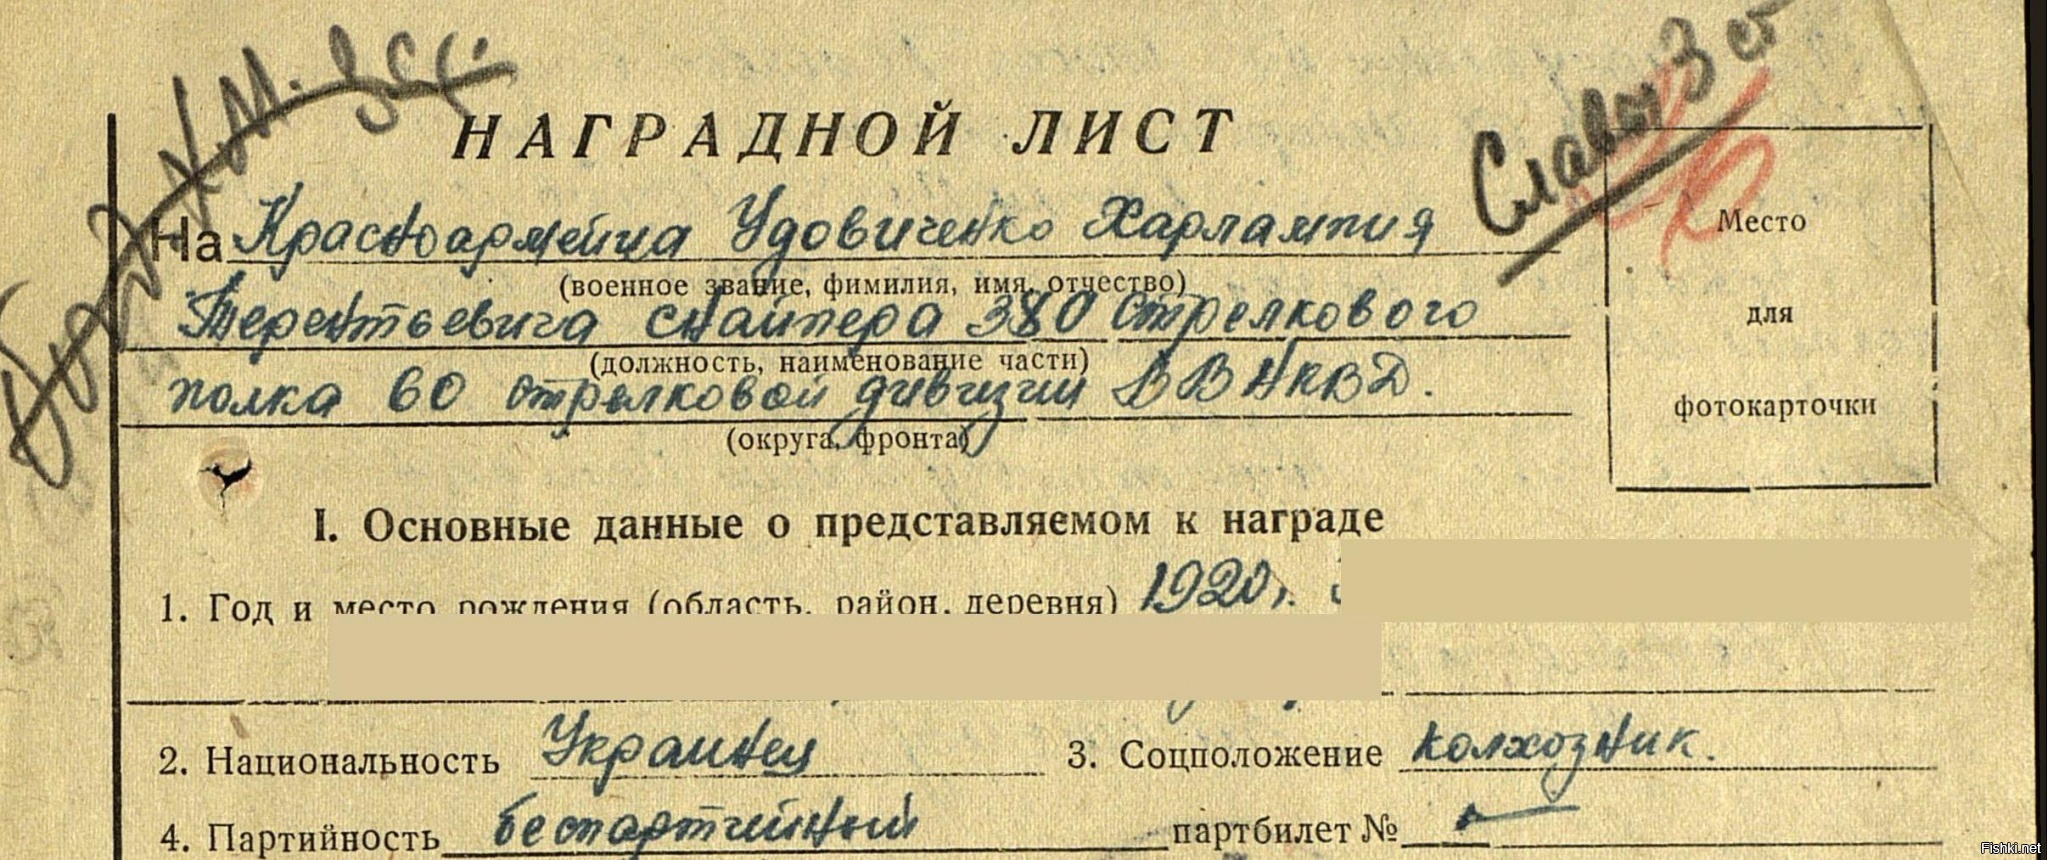 Славы 3 ст
НАГРАДНОЙ ЛИСТ
На Красноармейца Удовиченко Харлампия
(военное звание, фимилия, имя, отчество)
Терентьевича снайпера 380 стрелкового
(должность, наименование части)
полка 60 стрелковой дивизии ВВ НКВД.
(округа, фронта)
Место
для
фотокарточки
I. Основные данные о представляемом к награде
1. Год и место рождения (область, район, деревня) 1920 г.
2. Национальность Украинец 3. Соцположение колхозник.
4. Партийность беспартийный партбилет № —
Fishki.net